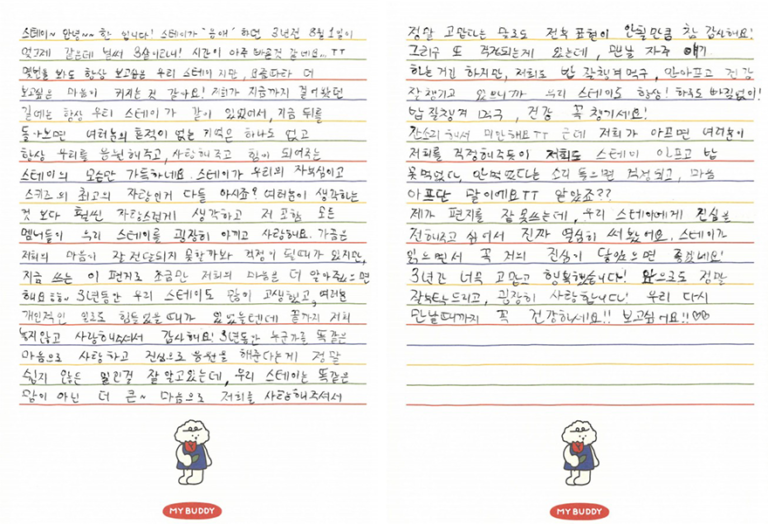 스테이~ 안녕~~ 한 입니다! 스테이가 "공개" 하던 3년전 8월 1일이
엊그제 같은데 벌써 3살이라니! 시간이 아주 빠른것 같네요...ㅠㅠ
몇번을 봐도 항상 보고싶은 우리 스테이 지만, 요즘따라 더
보고싶은 마음이 커지는 것 같아요! 저희가 지금까지 걸어왔던
길에는 항상 우리 스테이가 같이 있었어서, 지금 뒤를
돌아보면 여러분의 흔적이 없는 기억은 하나도 없고
항상 우리를 응원해주고, 사랑해주고 힘이 되어주는
스테이의 모습만 가득하네요. 스테이가 우리의 자부심이고
스키즈의 최고의 자랑인거 다들 아시죠? 여러분이 생각하는
것 보다 훨씬 자랑스럽게 생각하고 저 포함 모든
멤버들이 우리 스테이를 굉장히 아끼고 사랑해요. 가끔은
저희의 마음이 잘 전달되지 못할까봐 걱정이 될때가 있지만,
지금 쓰는 이 편지로 조금만 저희의 마음을 더 알아줬으면
해요 3년동안 우리 스테이도 많이 고생했고, 여러분
개인적인 일로도 힘들었을 때가 있었을텐데 끝까지 저희
놓지않고 사랑해주셔서 감사해요! 3년동안 누군가를 똑같은
마음으로 사랑하고 진심으로 응원을 해준다는게 정말
쉽지 않은 일인걸 잘 알고있는데, 우리 스테이는 똑같은
맘이 아닌 더 큰~ 마음으로 저희를 사랑해주셔서
MY BUDDY
정말 고맙다는 말로도 전부 표현이 안될만큼 참 감사해요!
그리구 또 걱정되는게 있는데, 맨날 자주 얘기
하는거긴 하지만, 저희도 밥 잘챙겨먹구, 안아프고 건강
잘 챙기고 있으니까 우리 스테이도 항상! 하루도 빠짐없이!
밥 잘챙겨 먹구, 건강 꼭 챙기세요!
잔소리 해서 미안해요ㅠㅠ 근데 저희가 아프면 여러분이
저희를 걱정해주듯이 저희도 스테이 아프고 밥
못먹었다, 안먹었다는 소리 들으면 걱정되고, 마음
아프단 말이에요ㅠㅠ 알았죠??
제가 편지를 잘 못쓰는데, 우리 스테이에게 진심을
전해주고 싶어서 진짜 열심히 써봤어요. 스테이가
읽으면서 꼭 저의 진심이 닿았으면 좋겠네요!
3년간 너무 고맙고 행복했습니다! 앞으로도 정말
잘부탁드리고, 굉장히 사랑합니다! 우리 다시
만날때까지 꼭 건강하세요!! 보고싶어요!!♡♡
MY BUDDY